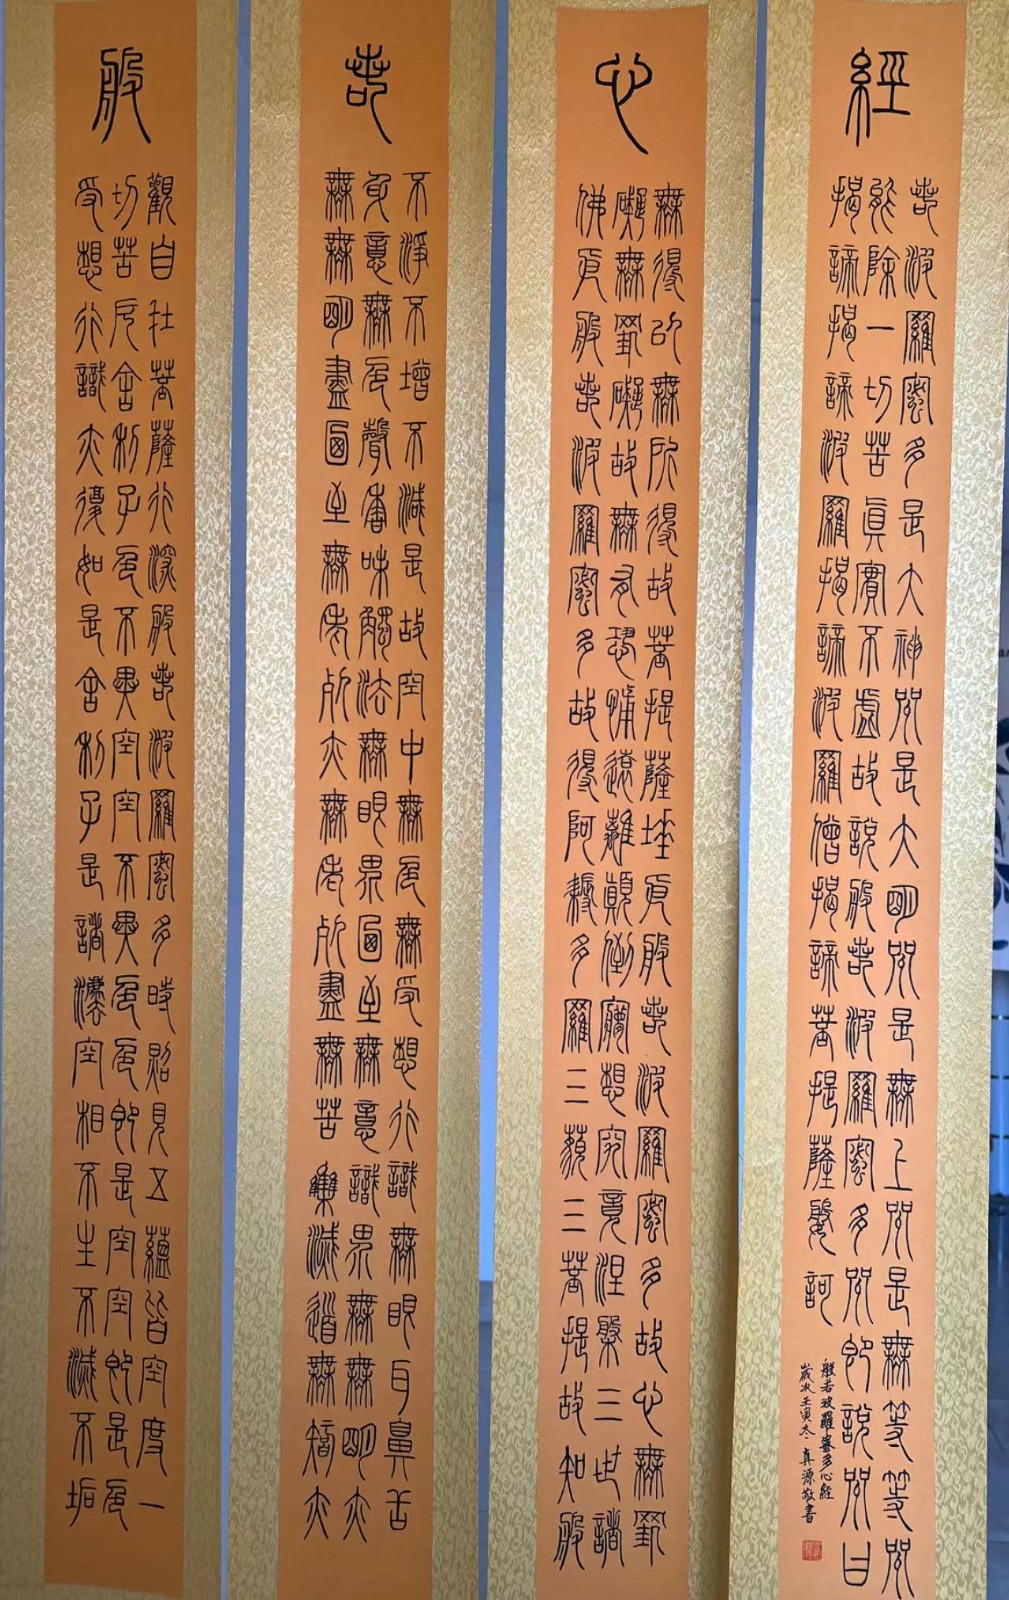 般
觀自在菩薩行深般若波羅蜜多時照見五蘊皆空度一
切苦厄舍利子色不異空空不異色色即是空空即是色
受想行識亦復如是舍利子是諸法空相不生不滅不垢
若
不淨不增不減是故空中無色無受想行識無眼耳鼻舌
身意無色聲香味觸法無眼界乃至無意識界無無明亦
無無明盡乃至無老死亦無老死盡無苦集滅道無智亦
心
無得以無所得故菩提薩埵依般若波羅蜜多故心無罣
礙無罣礙故無有恐怖遠離顛倒夢想究竟涅槃三世諸
佛依般若波羅蜜多故得阿耨多羅三藐三菩提故知般
經
若波羅蜜多是大神咒是大明咒是無上咒是無等等咒
能除一切苦真實不虛故說般若波羅蜜多咒即說咒曰
揭諦揭諦波羅揭諦波羅僧揭諦菩提薩婆訶
般若波羅蜜多心經
歲次壬寅冬 真源敬書